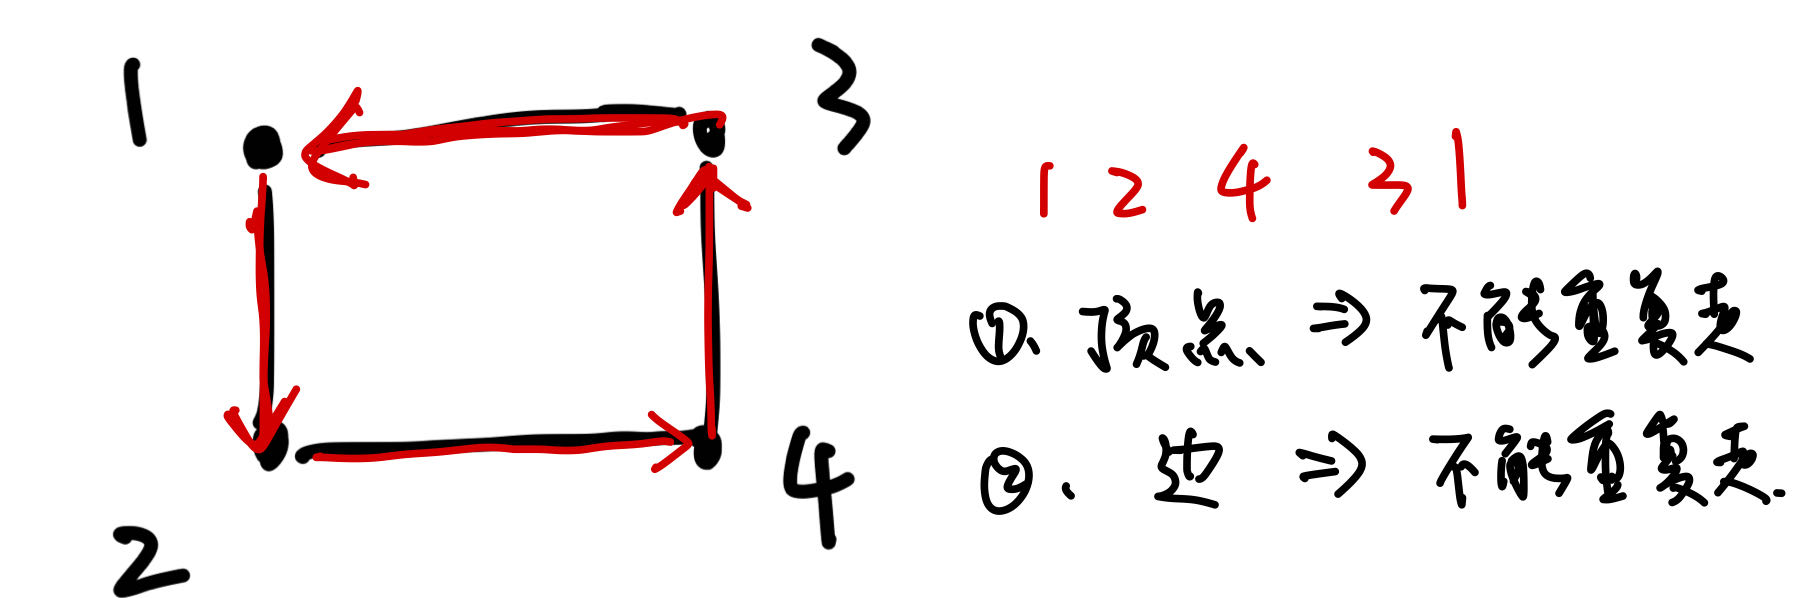 1
3
2
4
1 2 4 3 1
①. 顶点 ⇒ 不能重复走
②. 边 ⇒ 不能重复走.